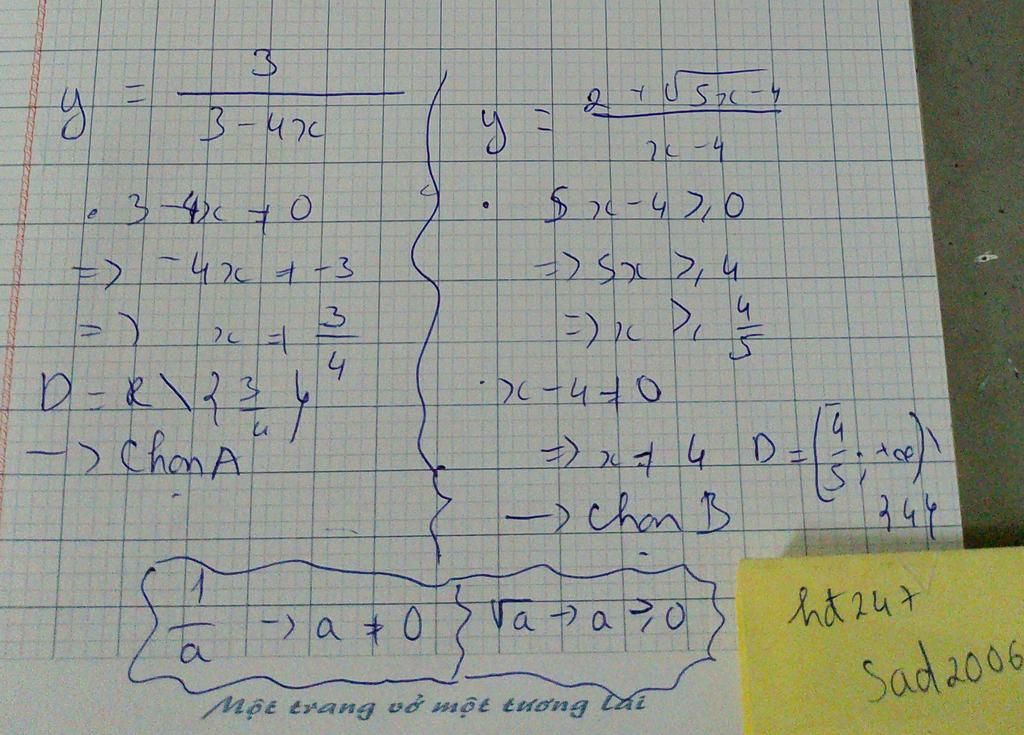 y = 3 / (3 - 4x)
. 3 - 4x ≠ 0
=> -4x ≠ -3
=> x ≠ 3/4
D = R \ {3/4}
-> Chọn A
y = (2 + √(5x - 4)) / (x - 4)
. 5x - 4 ≥ 0
=> 5x ≥ 4
=> x ≥ 4/5
. x - 4 ≠ 0
=> x ≠ 4 D = [4/5 ; +∞) \ {4}
-> Chọn B
1/a -> a ≠ 0 } √a -> a ≥ 0
Một trang vở một tương lai
hđ247
Sad2006